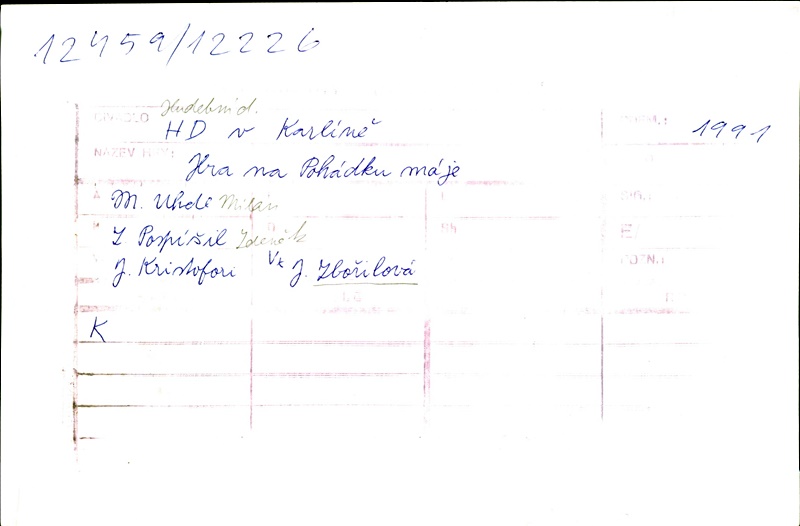 12459/12226
Hudební d.
DIVADLO HD v Karlíně 1991
NÁZEV HRY: Hra na Pohádku máje
M. Uhde Milan
Z Pospíšil Zdeněk
J. Kristofori Vk J. Zbořilová
K